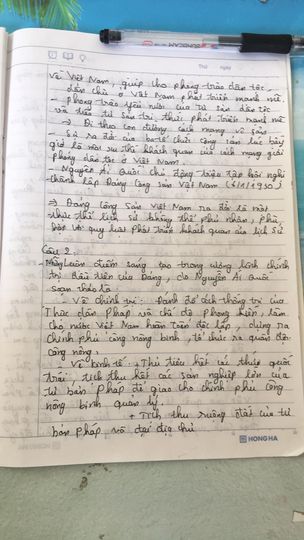 Thứ ngày
về Việt Nam, giúp cho phong trào dân tộc
dân chủ ở Việt Nam phát triển mạnh mẽ
- phong trào yêu nước của tư sản dân tộc
và tiểu tư sản trí thức phát triển mạnh mẽ
→ Đi theo con đường cách mạng vô sản
- Sự ra đời của ba tổ chức cộng sản lúc bấy
giờ là một xu thế khách quan của cách mạng giải
phóng dân tộc ở Việt Nam.
- Nguyễn Ái Quốc chủ động triệu tập hội nghị
thành lập Đảng Cộng sản Việt Nam (6/1/1930)
⇒ Đảng Cộng sản Việt Nam ra đời là một
thực thể lịch sử không thể phủ nhận, phù
hợp với quy luật phát triển khách quan của lịch sử
Câu 2:
luận điểm sáng tạo trong cương lĩnh chính
trị đầu tiên của Đảng, do Nguyễn Ái Quốc
soạn thảo là
- Về chính trị: Đánh đổ ách thống trị của
Thực dân Pháp và chế độ phong kiến, làm
cho nước Việt Nam hoàn toàn độc lập, dựng ra
chính phủ công nông binh, tổ chức ra quân đội
công nông.
- Về kinh tế: + Thủ tiêu hết các thứ quốc
trái, tịch thu hết các sản nghiệp lớn của
tư bản Pháp để giao cho chính phủ công
nông binh quản lý.
+ Tịch thu ruộng đất của tư
bản Pháp và đại địa chủ
HONG HA